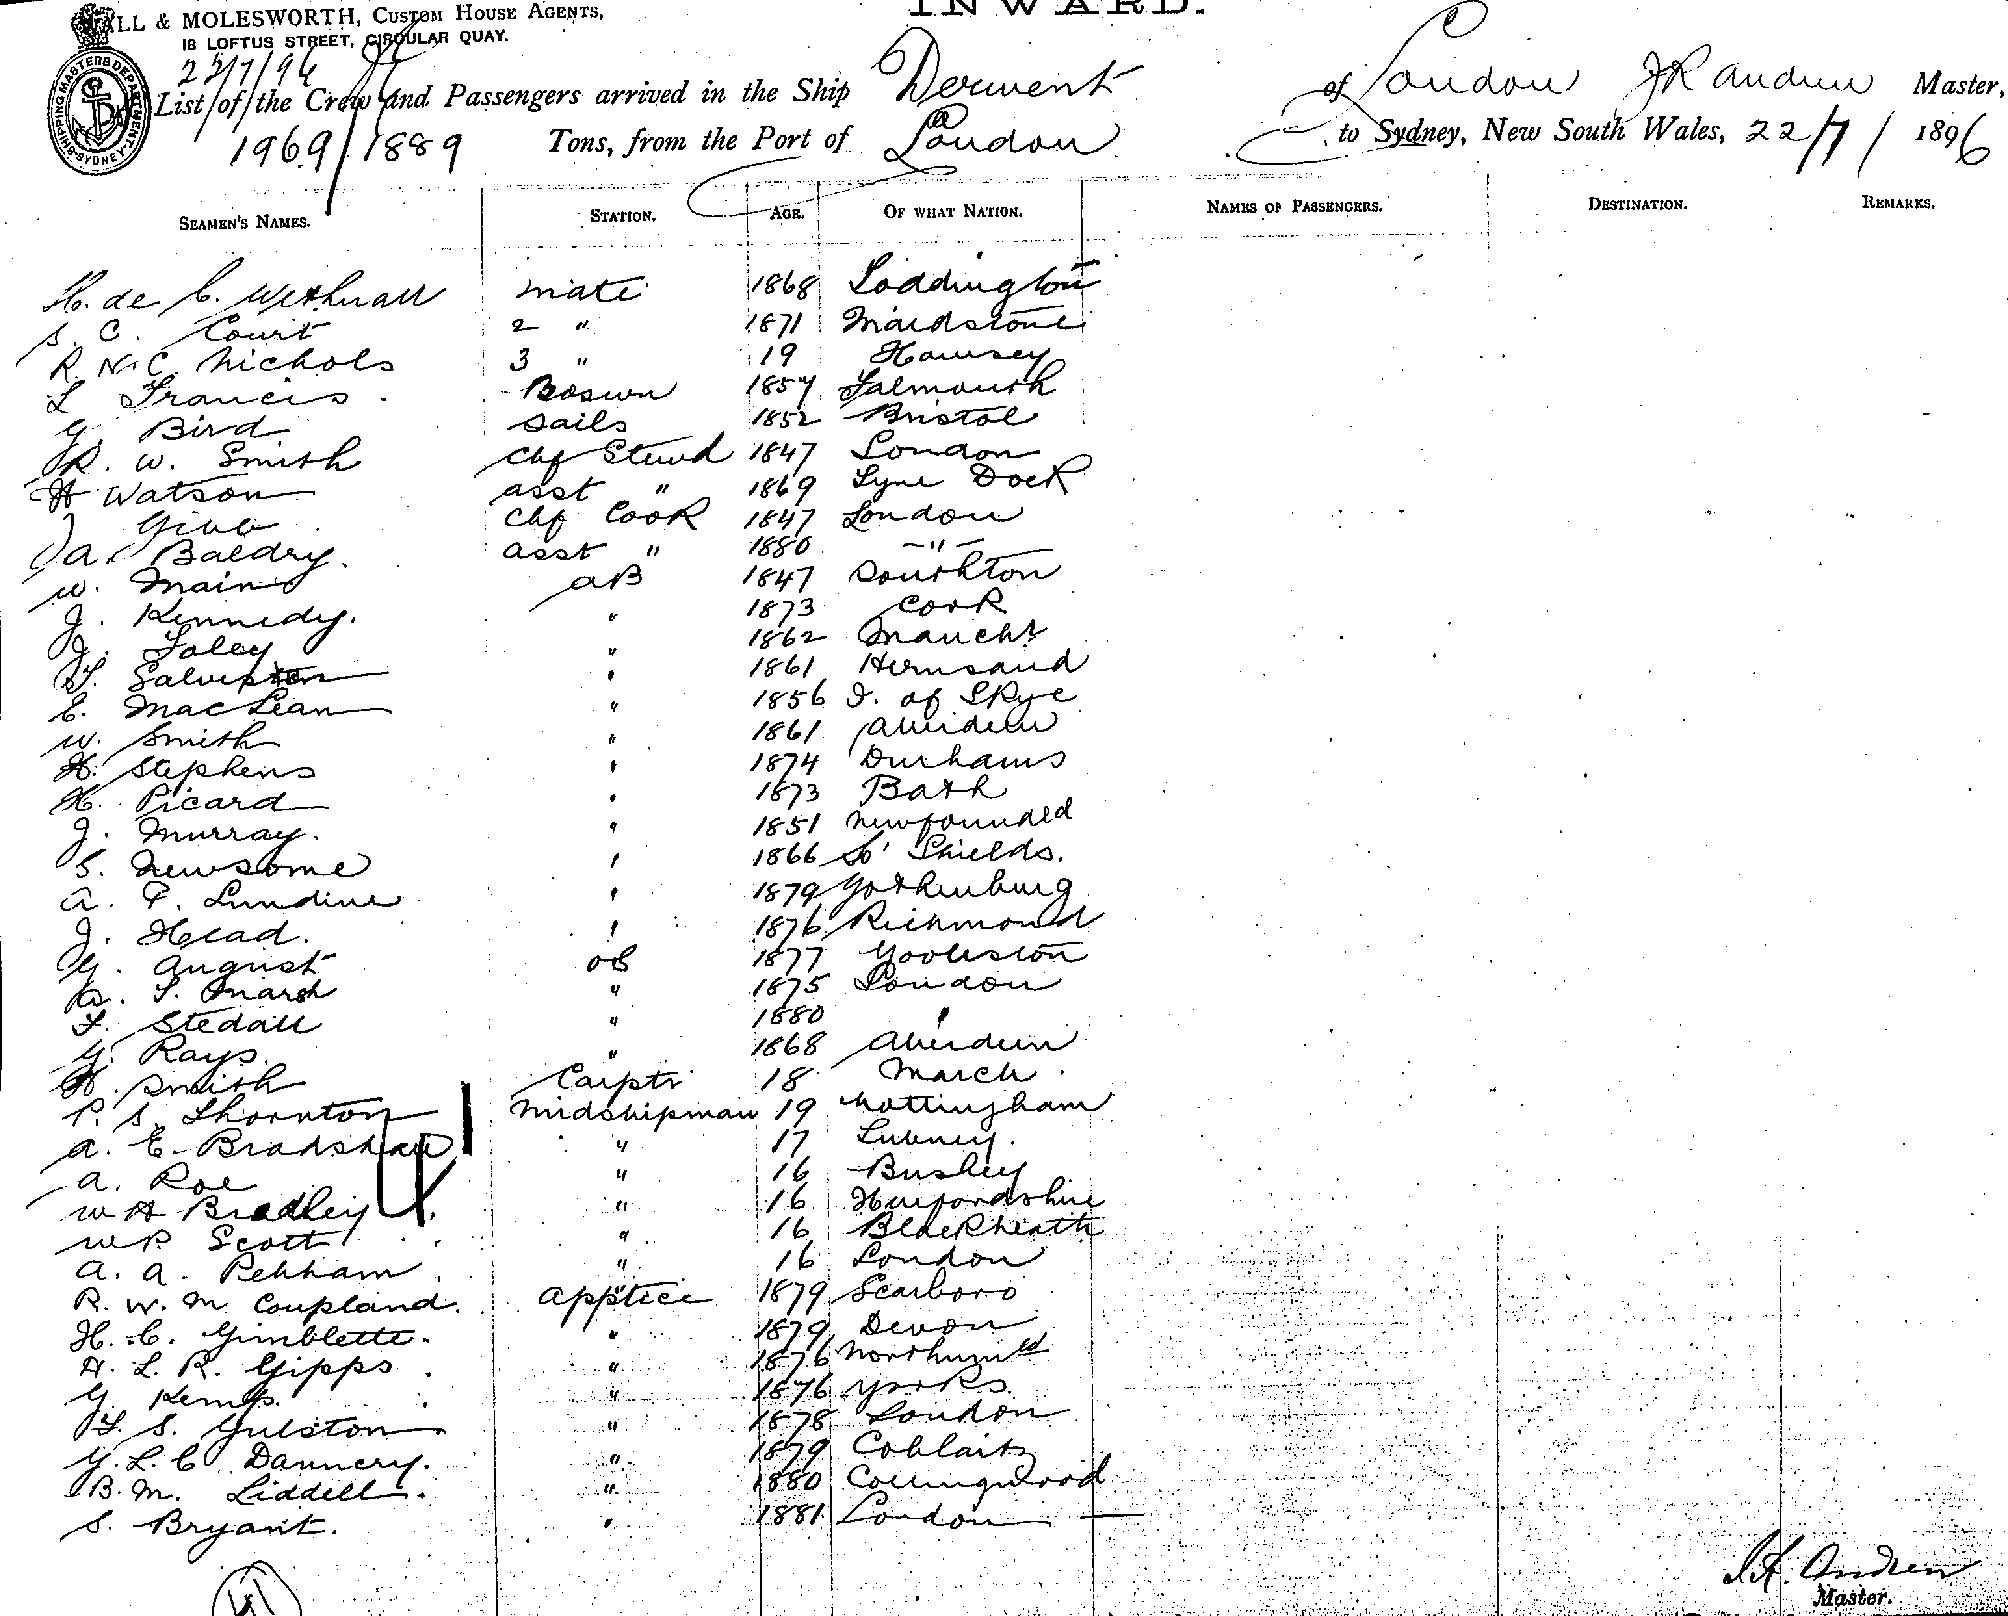 INWARD.
HALL & MOLESWORTH, CUSTOM HOUSE AGENTS,
18 LOFTUS STREET, CIRCULAR QUAY.
SHIPPING MASTERS DEPARTMENT SYDNEY
List of the Crew and Passengers arrived in the Ship Derwent of London Master,
1969/1889 Tons, from the Port of London to Sydney, New South Wales, 22/7/1896
SEAMEN'S NAMES. STATION. AGE. OF WHAT NATION. NAMES OF PASSENGERS. DESTINATION. REMARKS.
H. de C. mate 1868 Loddington
S. C. Court 2 " 1871 Maidstone
R. N. C. Nichols 3 " 19
L Francis Boswn 1857 Falmouth
G. Bird Sails 1852 Bristol
R. W. Smith Chf Stewd 1847 London
H Watson asst " 1869 Tyne Dock
J Gibb Chf Cook 1847 London
A. Baldry. asst " 1880 -"-
W. Main AB 1847 Southton
J. Kennedy. " 1873 Cork
J. Foley " 1862 Manchr
" 1861 Hernsand
E. MacLean " 1856 I. of Skye
W. Smith " 1861 Aberdeen
H. Stephens " 1874 Durhams
H. Picard " 1873 Bath
J. Murray. " 1851 Newfounded
S. Newsome " 1866 So' Shields.
A. P. Lundine " 1879 Gothenburg
J. Head. " 1876 Richmond
G. August OS 1877
T. Marsh " 1875 London
F. Stedall " 1880 "
G. Rays " 1868 Aberdeen
H. Smith Carptr 18 March
P. S. Thornton Midshipman 19 Nottingham
A. E. Bradshaw " 17
A. Roe " 16 Bushey
W H Bradley " 16 Herfordshire
W P Scott " 16 Blackheath
A. A. Pekham " 16 London
R. W. M. Coupland. Apptice 1879 Scarboro
H. C. Gimblette. " 1879 Devon
H. L. R. Gipps " 1876
G Kemp. " 1876 Yorks.
F. S. Gulston " 1878 London
G. L. C. Dannery. " 1879
B. M. Liddell. " 1880 Collingwood
S. Bryant. " 1881 London
Andrew
Master.